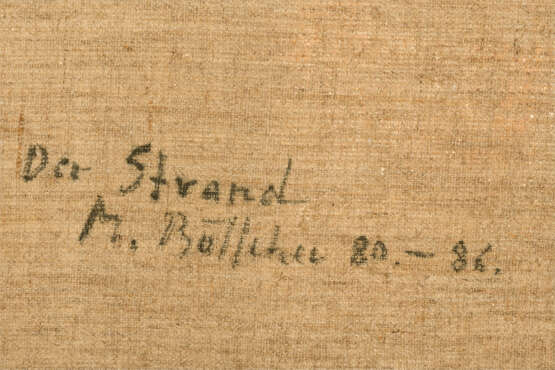 Der Strand
M. Böttcher 80. - 86.